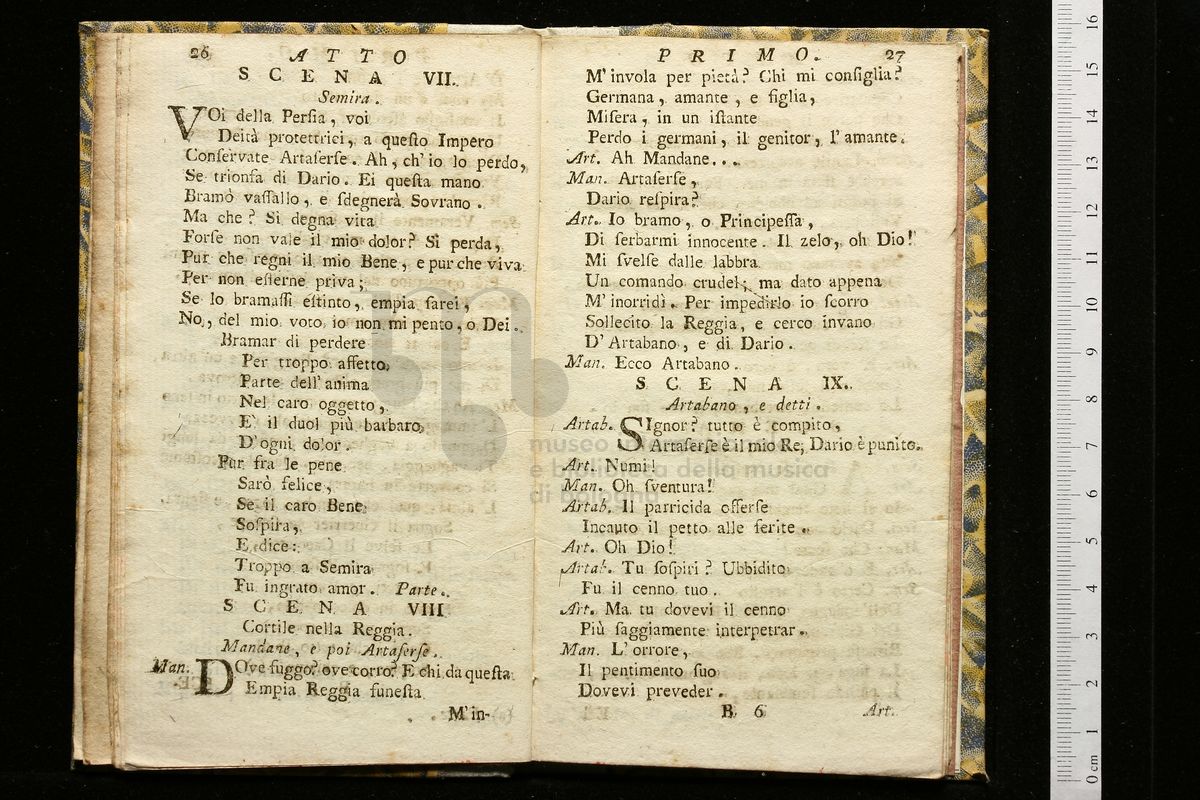 26 ATTO
SCENA VII.
Semira.
VOi della Perſia, voi
Deità protettrici, a queſto Impero
Conſervate Artaſerſe. Ah, ch'io lo perdo,
Se trionfa di Dario. Ei queſta mano
Bramò vaſſallo, e ſdegnerà Sovrano.
Ma che? Sì degna vita
Forſe non vale il mio dolor? Si perda,
Pur che regni il mio Bene, e pur che viva
Per non eſſerne priva;
Se lo bramaſſi eſtinto, empia ſarei,
No, del mio voto io non mi pento, o Dei.
Bramar di perdere
Per troppo affetto
Parte dell'anima
Nel caro oggetto,
E' il duol più barbaro
D'ogni dolor.
Pur fra le pene
Sarò felice,
Se il caro Bene
Soſpira,
E dice:
Troppo a Semira
Fu ingrato amor. Parte.
SCENA VIII
Cortile nella Reggia.
Mandane, e poi Artaſerſe.
Man. DOve fuggo? ove corro? E chi da queſta
Empia Reggia funeſta
M'in-
PRIMO. 27
M'invola per pietà? Chi mi conſiglia?
Germana, amante, e figlia,
Miſera, in un iſtante
Perdo i germani, il genitor, l'amante.
Art. Ah Mandane...
Man. Artaſerſe,
Dario reſpira?
Art. Io bramo, o Principeſſa,
Di ſerbarmi innocente. Il zelo, oh Dio!
Mi ſvelſe dalle labbra
Un comando crudel; ma dato appena
M'inorridì. Per impedirlo io ſcorro
Sollecito la Reggia, e cerco invano
D'Artabano, e di Dario.
Man. Ecco Artabano.
SCENA IX.
Artabano, e detti.
Artab. SIgnor? tutto è compito,
Artaſerſe è il mio Re, Dario è punito.
Art. Numi!
Man. Oh ſventura!
Artab. Il parricida offerſe
Incauto il petto alle ferite.
Art. Oh Dio!
Artab. Tu ſoſpiri? Ubbidito
Fu il cenno tuo.
Art. Ma tu dovevi il cenno
Più ſaggiamente interpetrar.
Man. L'orrore,
Il pentimento ſuo
Dovevi preveder.
B 6 Art.
museo internazionale
e biblioteca della musica
di bologna
0 cm 1 2 3 4 5 6 7 8 9 10 11 12 13 14 15 16